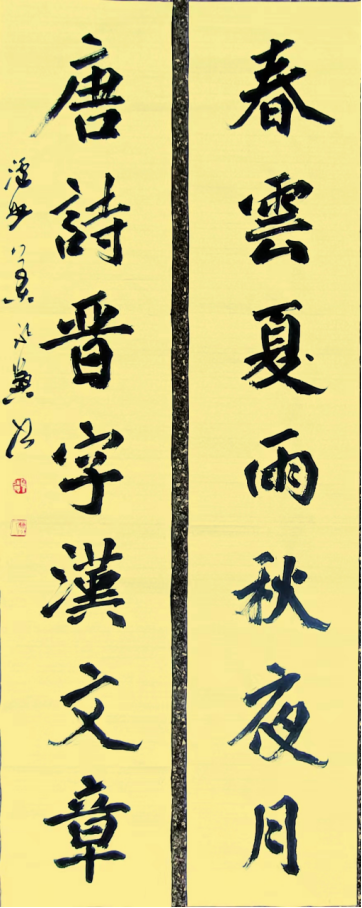 春雲夏雨秋夜月
唐詩晋字漢文章